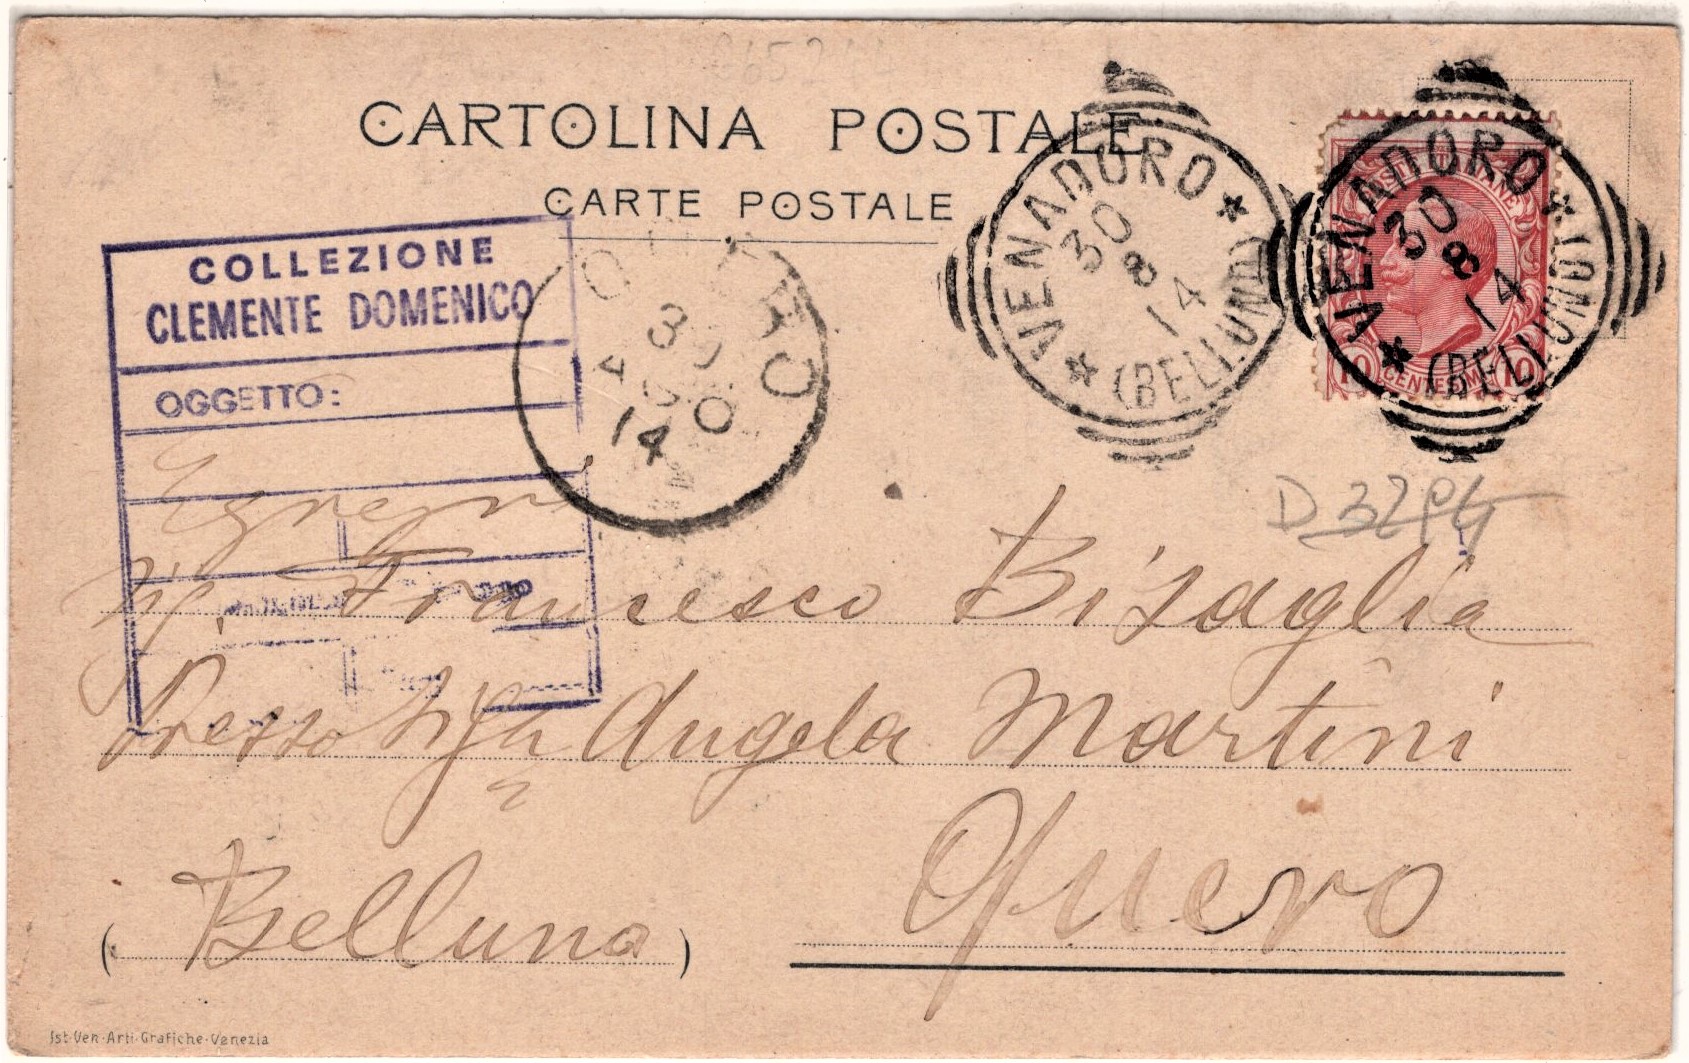 CARTOLINA POSTALE
CARTE POSTALE
COLLEZIONE
CLEMENTE DOMENICO
OGGETTO:
QUERO
30
AGO
14
VENADORO
30
8
14
(BELLUNO)
VENADORO
30
8
14
(BELLUNO)
POSTE ITALIANE
10 CENTESIMI 10
Egregio
Sig. Francesco Bisaglia
Presso Sig.ra Angela Martini
Quero
(Belluno)
Ist. Ven. Arti Grafiche-Venezia